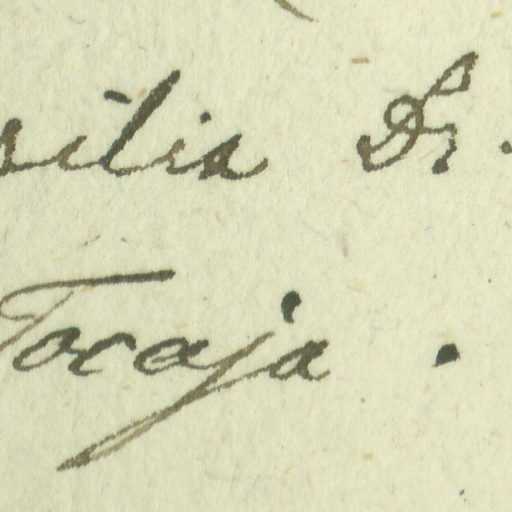 silia Dr.
Tocaja.